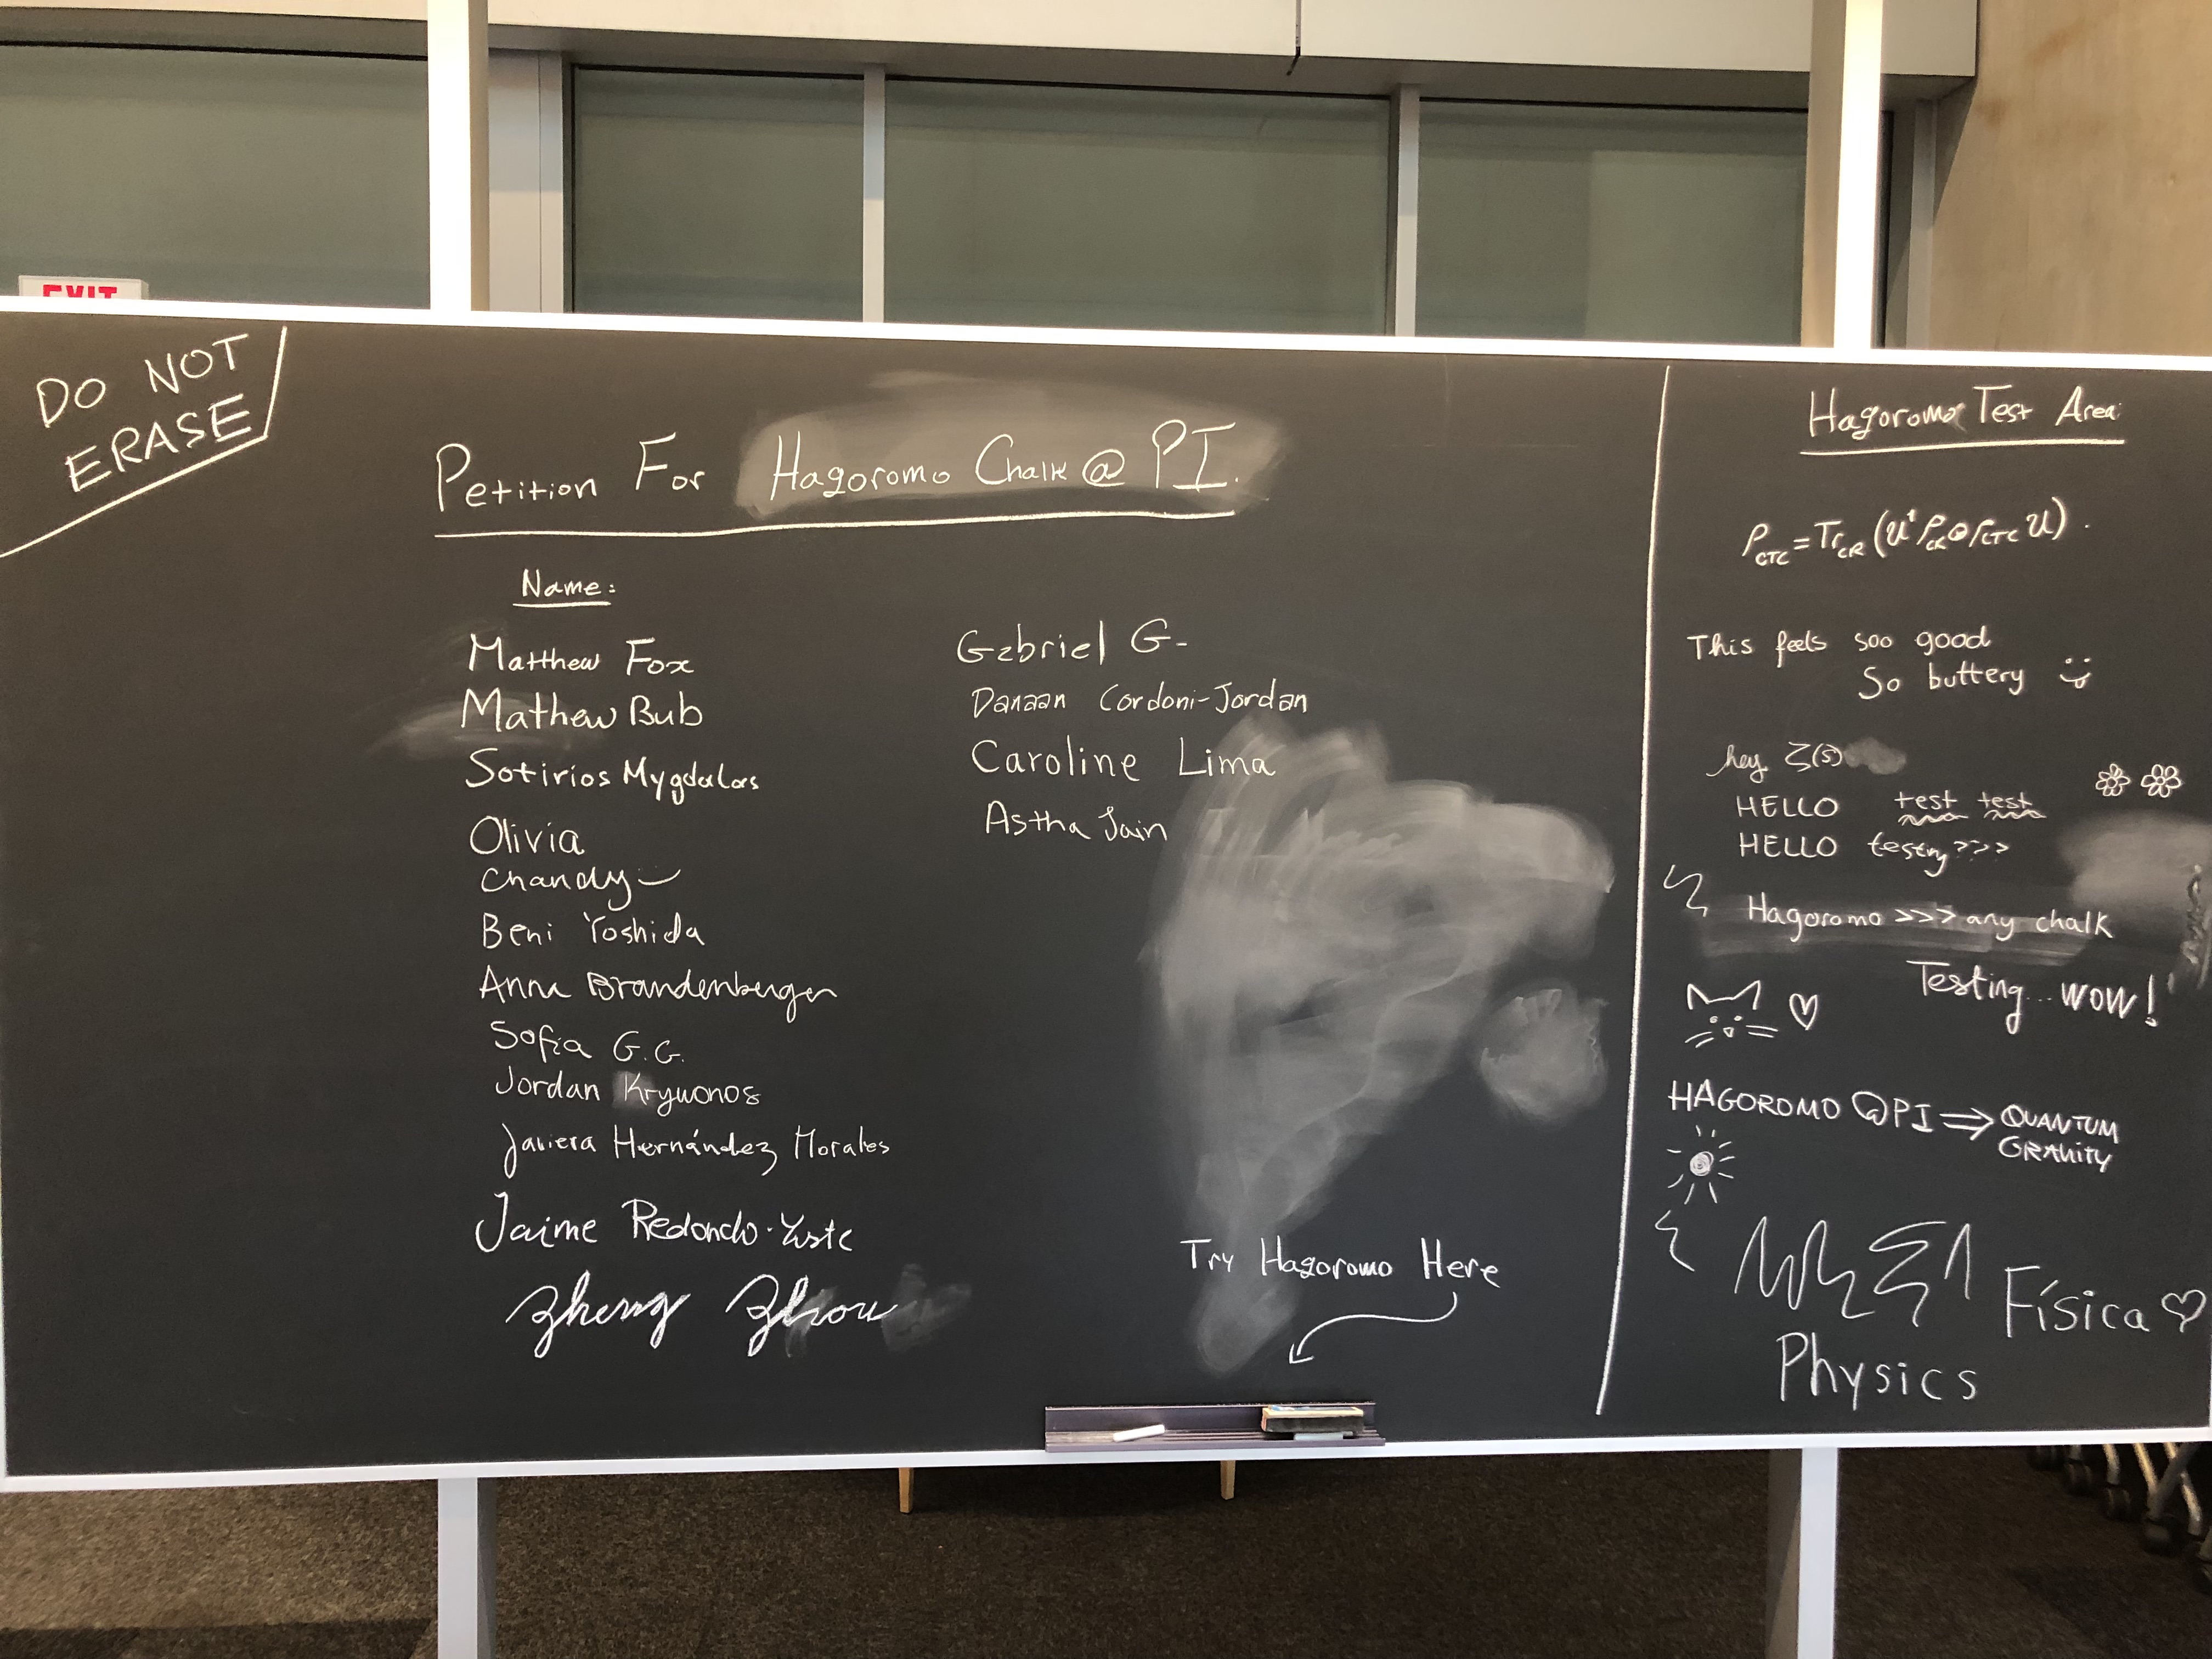 EXIT
DO NOT
ERASE
Petition For Hagoromo Chalk @ PI.
Name:
Matthew Fox
Mathew Bub
Sotirios Mygdalas
Olivia
Chandy
Beni Yoshida
Anna Brandenberger
Sofia G.G.
Jordan Krywonos
Javiera Hernández Morales
Jaime Redondo-Yuste
Zheng Zhou
Gabriel G-
Danaan Cordoni-Jordan
Caroline Lima
Astha Jain
Try Hagoromo Here
Hagoromo Test Area
ρCTC = TrCR (U† ρCR ⊗ ρCTC U).
This feels soo good
So buttery
hey ζ(s)
HELLO test test
HELLO testing >>>
Hagoromo >>> any chalk
Testing... WOW!
♡
HAGOROMO @PI ⇒ QUANTUM
GRAVITY
Física ♡
Physics